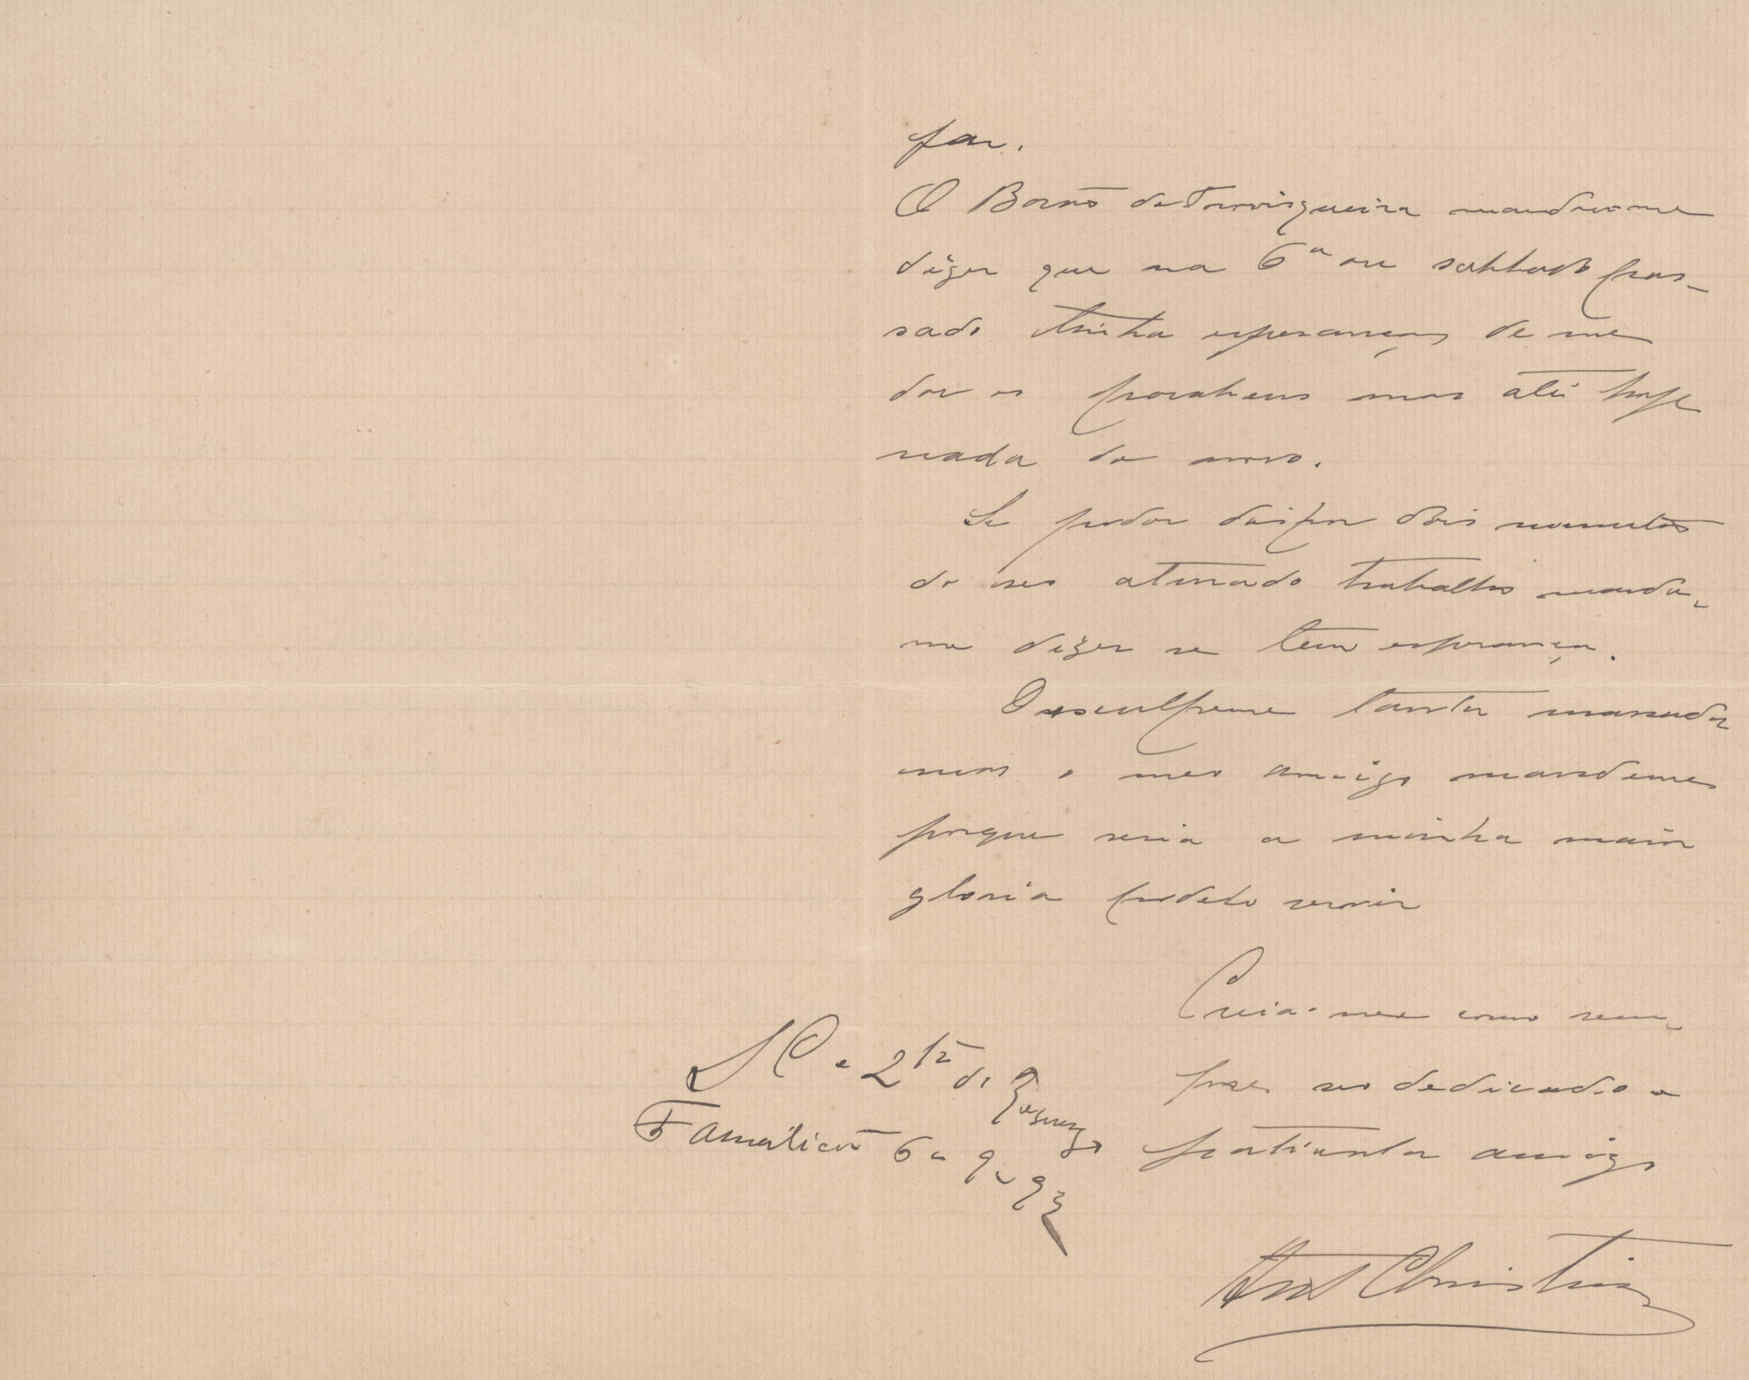 far.
O Barão de Trovisqueira mandou-me
dizer que na 6ª ou sabbado pas-
sado tinha esperanças de me
dar os parabens mas até hoje
nada de novo.
Se poder dispor dois momentos
do seu aturado trabalho manda-
me dizer se tem esperança.
Desculpeme tanta massada
mas o meu amigo mandeme
porque seria a minha maior
gloria podelo servir
Creia-me como sem-
pre seu dedicado e
amigo
S C. 2 de
Famalicão 6 - 9 - 93
Christino